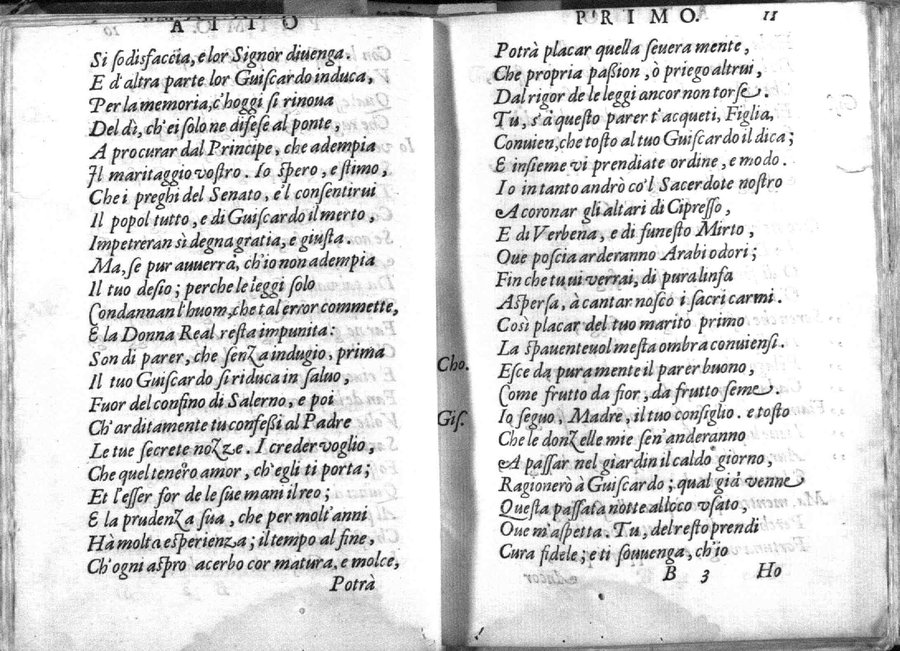 Si sodisfaccia, e lor Signor diuenga.
E d'altra parte lor Guiscardo induca,
Per la memoria, c'hoggi si rinoua
Del dì, ch'ei solo ne difese al ponte,
A procurar dal Principe, che adempia
Il maritaggio vostro. Io spero, e stimo,
Che i preghi del Senato, e'l consentirui
Il popol tutto, e di Guiscardo il merto,
Impetreran sì degna gratia, e giusta.
Ma, se pur auuerrà, ch'io non adempia
Il tuo desio; perche le leggi solo
Condannan l'huom, che tal error commette,
E la Donna Real resta impunita:
Son di parer, che senza indugio, prima
Il tuo Guiscardo si riduca in saluo,
Fuor del confino di Salerno, e poi
Ch'arditamente tu confessi al Padre
Le tue secrete nozze. I creder voglio,
Che quel tenero amor, ch'egli ti porta;
Et l'esser for de le sue mani il reo;
E la prudenza sua, che per molt'anni
Hà molta esperienza; il tempo al fine,
Ch'ogni aspro acerbo cor matura, e molce,
Potrà
PRIMO. 11
Potrà placar quella seuera mente,
Che propria passion, ò priego altrui,
Dal rigor de le leggi ancor non torse.
Tu, s'a questo parer t'acqueti, Figlia,
Conuien, che tosto al tuo Guiscardo il dica;
E insieme vi prendiate ordine, e modo.
Io intanto andrò co'l Sacerdote nostro
A coronar gli altari di Cipresso,
E di Verbena, e di funesto Mirto,
Oue poscia arderanno Arabi odori;
Fin che tu ui verrai, di pura linfa
Aspersa, à cantar nosco i sacri carmi.
Così placar del tuo marito primo
La spauenteuol mesta ombra conuiensi.
Cho. Esce da pura mente il parer buono,
Come frutto da fior, da frutto seme.
Gis. Io seguo, Madre, il tuo consiglio. e tosto
Che le donzelle mie sen'anderanno
A passar nel giardin il caldo giorno,
Ragionerò à Guiscardo; qual già venne
Questa passata notte al loco vsato,
Oue m'aspetta. Tu, del resto prendi
Cura fidele; e ti souuenga, ch'io
B 3 Ho